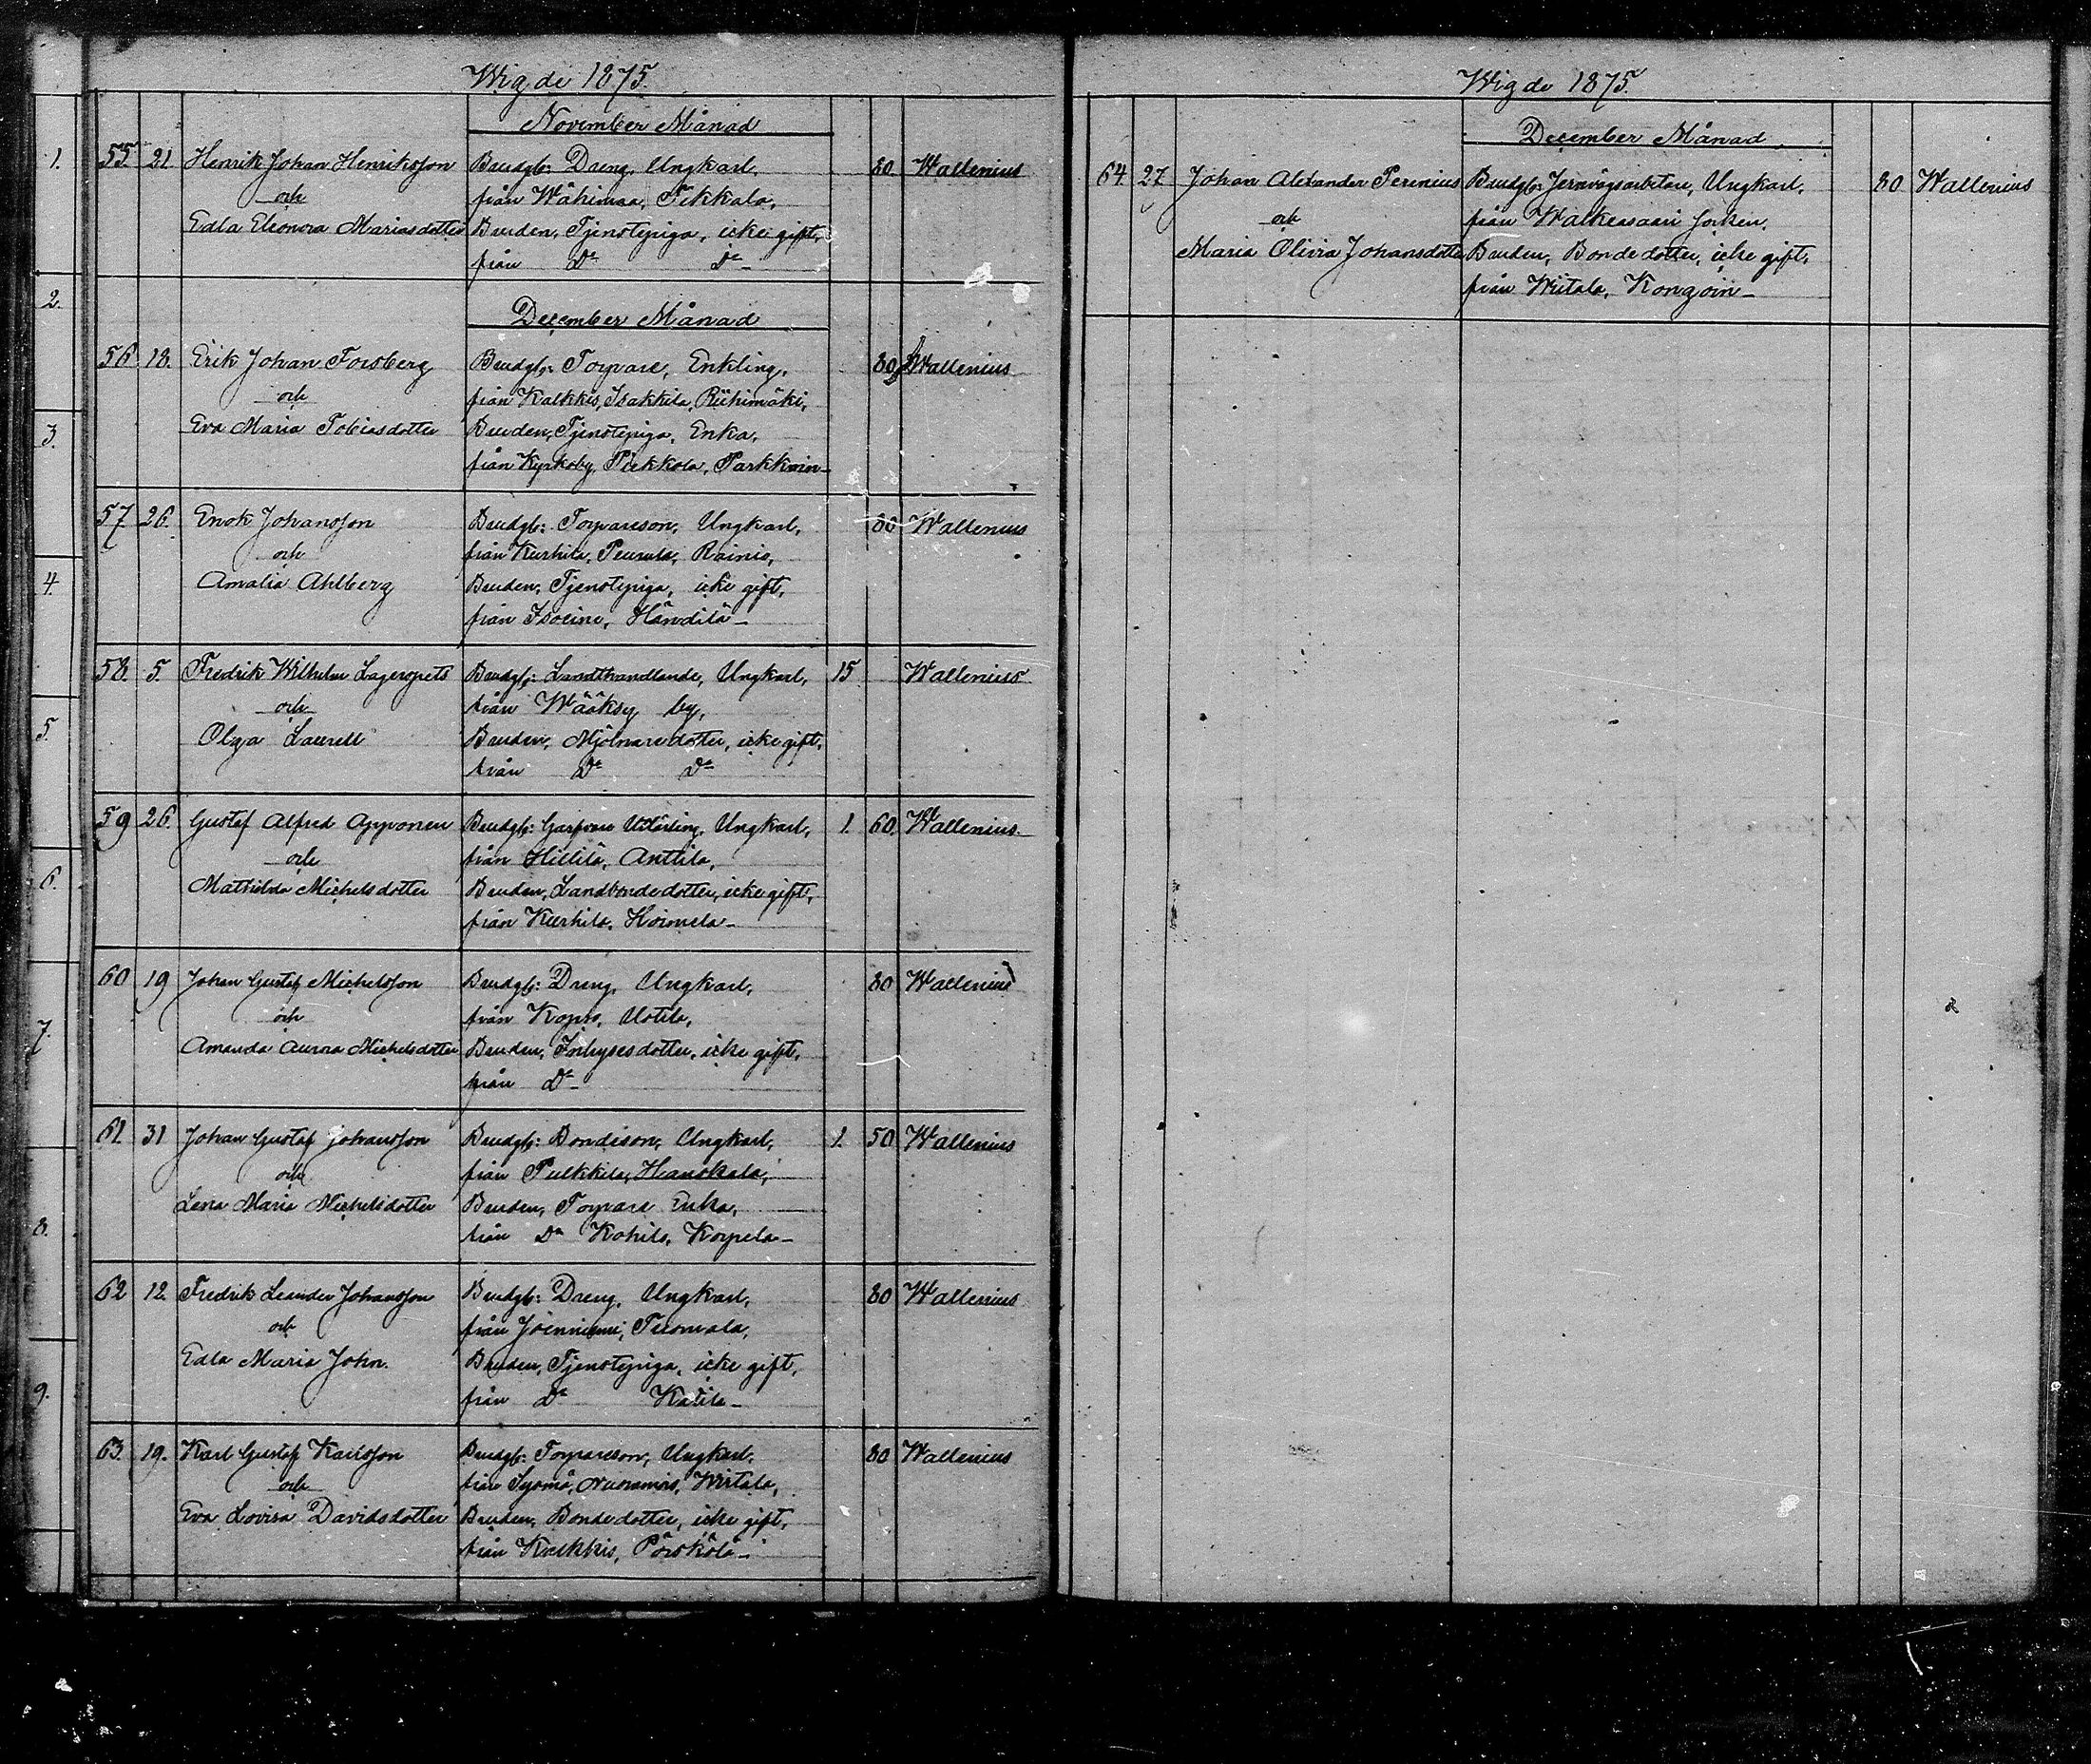 Wigde 1875.
November Månad
1.
55. 21. Henrik Johan Henriksson Brudg: Dreng, Ungkarl, 80 Wallenius
och från Wähimaa, Tikkala,
Edla Eleonora Mariasdotter Bruden, Tjenstepiga, icke gift,
från Do Do
2.
December Månad
56. 18. Erik Johan Forsberg Brudg: Torpare, Enkling, 80 Wallenius
och från Kalkkis, Isakkila, Riihimäki,
3.
Eva Maria Tobiasdotter Bruden, Tjenstepiga, Enka,
från Kyrkoby, Pirkkola,
57. 26. Enok Johansson Brudg: Torpareson, Ungkarl, 80 Wallenius
och från Kurhila, Peurala, Rainio,
4.
Amalia Ahlberg Bruden, Tjenstepiga, icke gift,
från Isoeine, Händilä
58. 5. Fredrik Wilhelm Brudg: Landthandlande, Ungkarl, 15 Wallenius
och från Wääksy by,
5.
Olga Laurell Bruden, Mjölnaredotter, icke gift,
från Do Do
59. 26. Gustaf Alfred Apponen Brudg: Garfvare Ungkarl, 1. 60. Wallenius
och från Hillilä, Anttila,
6.
Mathilda Michelsdotter Bruden, Landbondedotter, icke gift,
från Kurhila,
60 19 Johan Gustaf Michelsson Brudg: Dreng, Ungkarl, 80 Wallenius
och från Kopso, Uotila,
7.
Amanda Aurora Michelsdotter Bruden, Inhysesdotter, icke gift,
från Do
61. 31 Johan Gustaf Johansson Brudg: Bondeson, Ungkarl, 1. 50 Wallenius
och från Pulkkila, Hanskala,
8.
Lena Maria Michelsdotter Bruden, Torpare Enka,
från Do Kohila, Korpela
62 12. Fredrik Leander Johansson Brudg: Dreng, Ungkarl, 80 Wallenius
och från Joinniemi, Tuomala,
9.
Edla Maria John. Bruden, Tjenstepiga, icke gift,
från Do Katila
63. 19. Karl Gustaf Karlsson Brudg: Torpareson, Ungkarl, 80 Wallenius
och från Sysmä, Nuoramois, Wirtala,
Eva Lovisa Davidsdotter Bruden, Bondedotter, icke gift,
från Kalkkis, Pörskölä
Wigde 1875.
December Månad
64. 27 Johan Alexander Perenius Brudg: Jernvägsarbetare, Ungkarl, 80 Wallenius
och från Walkeasaari
Maria Olivia Johansdotter Bruden, Bondedotter, icke gift,
från Wiitala,